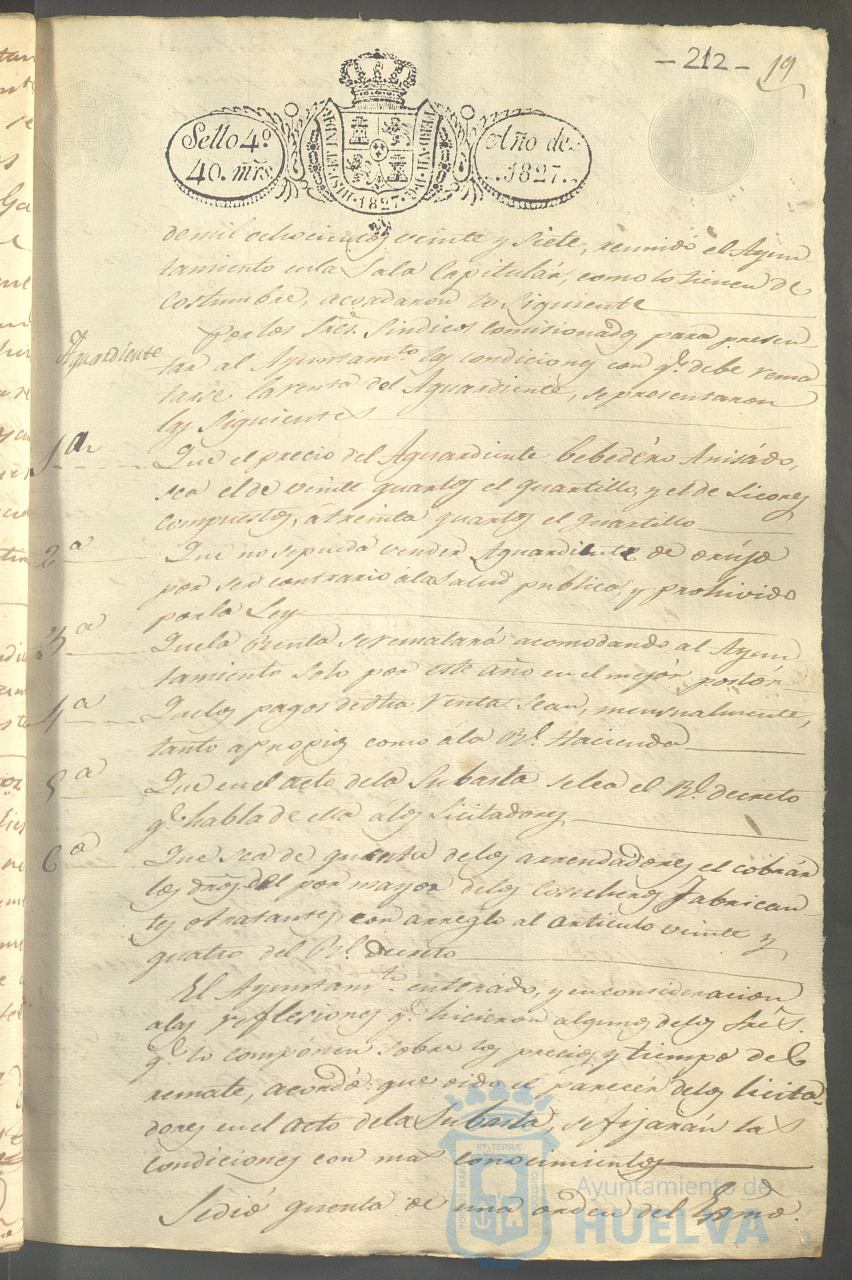 - 212 - 19
Sello 4º
40. mrs.
HISP. ET IND. R.
FERD. VII. D. G.
· 1827 ·
Año de
1827.
de mil ochocientos veinte y siete, reunido el Ayun-
tamiento en la Sala Capitular, como lo tienen de
Costumbre, acordaron lo Siguiente
Aguardiente
Por los Sres. Sindicos comisionados para presen-
tar al Ayuntamto. las condiciones con q.e debe rema-
tarse la renta del Aguardiente, se presentaron
las Siguientes
1ª Que el precio del Aguardiente bebedéro Anisádo,
sea el de veinte quartos el quartillo, y el de Licores
compuestos, á treinta quartos el quartillo
2ª Que no se pueda vender Aguardiente de orújo
por ser contrario á la Salud publica, y prohivido
por la Ley
3ª Que la Renta se rematará acomodando al Ayun
tamiento solo por este año en el mejór postór
4ª Que los pagos de dha. Venta Sean, mensualmente,
tanto a propios como á la Rl. Hacienda
5ª Que en el acto de la Subasta se lea el Rl. decreto
q.e habla de ella á los Licitadores
6ª Que sea de quenta de los arrendadores el cobrár
los dros. del por mayor de los Cosecheros fabrican-
tes ó tratantes, con arreglo al articulo veinte y
quatro del Rl. Decreto
El Ayuntamto. enterado, y en consideracion
a las reflesiones q.e hicieron algunos de los Sres.
q.e lo compónen sobre los precios, y tiempo del
remate, acordó: que oido el parecér de los licita-
dores en el acto de la Subasta, se fijarán las
condiciones con mas conocimientos
Se dió quenta de una orden del Exmo.
Ayuntamiento de
HUELVA